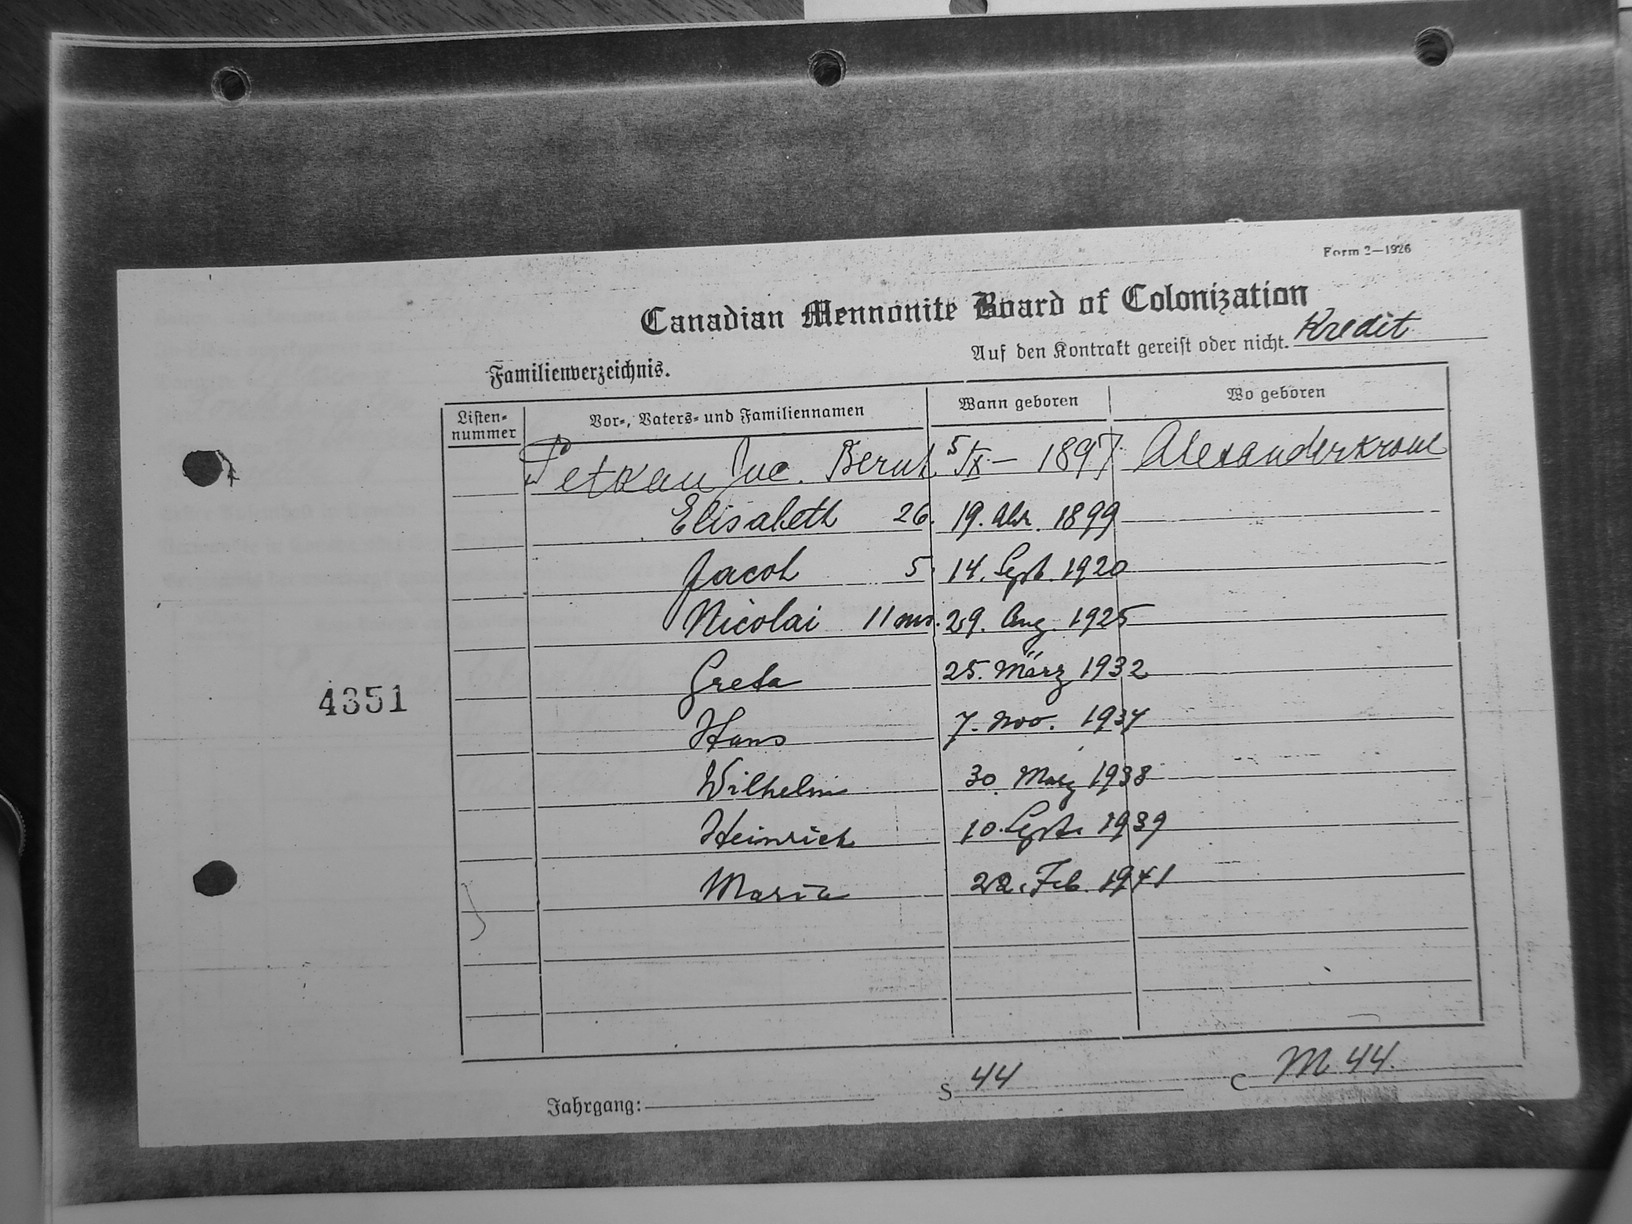 Form 2—1926
Canadian Mennonite Board of Colonization
Auf den Kontrakt gereist oder nicht. Kredit
Familienverzeichnis.
Listen-nummer Vor-, Vaters- und Familiennamen Wann geboren Wo geboren
Petkau Jac. Bernh 5/IX — 1897 Alexanderkrone
Elisabeth 26. 19. 1899
Jacob 5. 14. Sept. 1920
Nicolai 11 mo. 29. Aug. 1925
Greta 25. März 1932
4351
Hans 7. Nov. 1934
Wilhelm 30. März 1938
Heinrich 10. Sept. 1939
Maria 22. Feb. 1941
Jahrgang: S 44 C M 44.